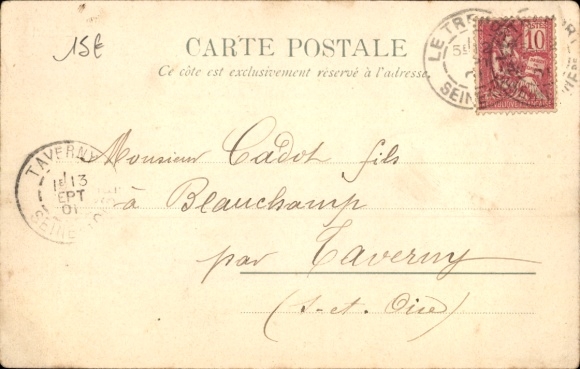 15€
CARTE POSTALE
Ce côté est exclusivement réservé à l'adresse.
LE TRE
SEINE
10
TAVERNY
13
EPT
01
SEINE
Monsieur Cadot fils
à Beauchamp
par Taverny
(S-et-Oise)